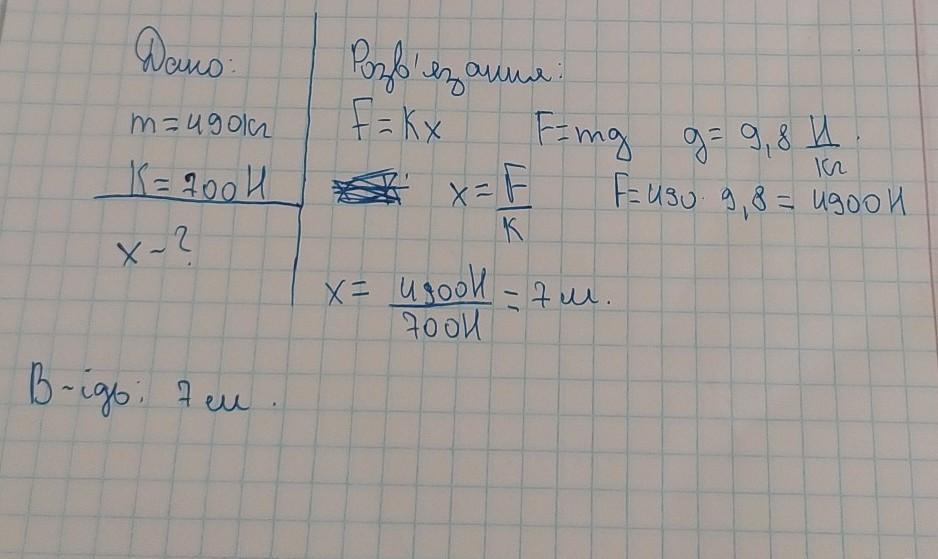 Дано:
m=490кг
K=700Н
x-?
Розв'язання:
F=Kx F=mg g=9,8 Н/кг.
x=F/K F=490·9,8=4900Н
x=4900Н/700Н=7м.
В-ідь: 7м.